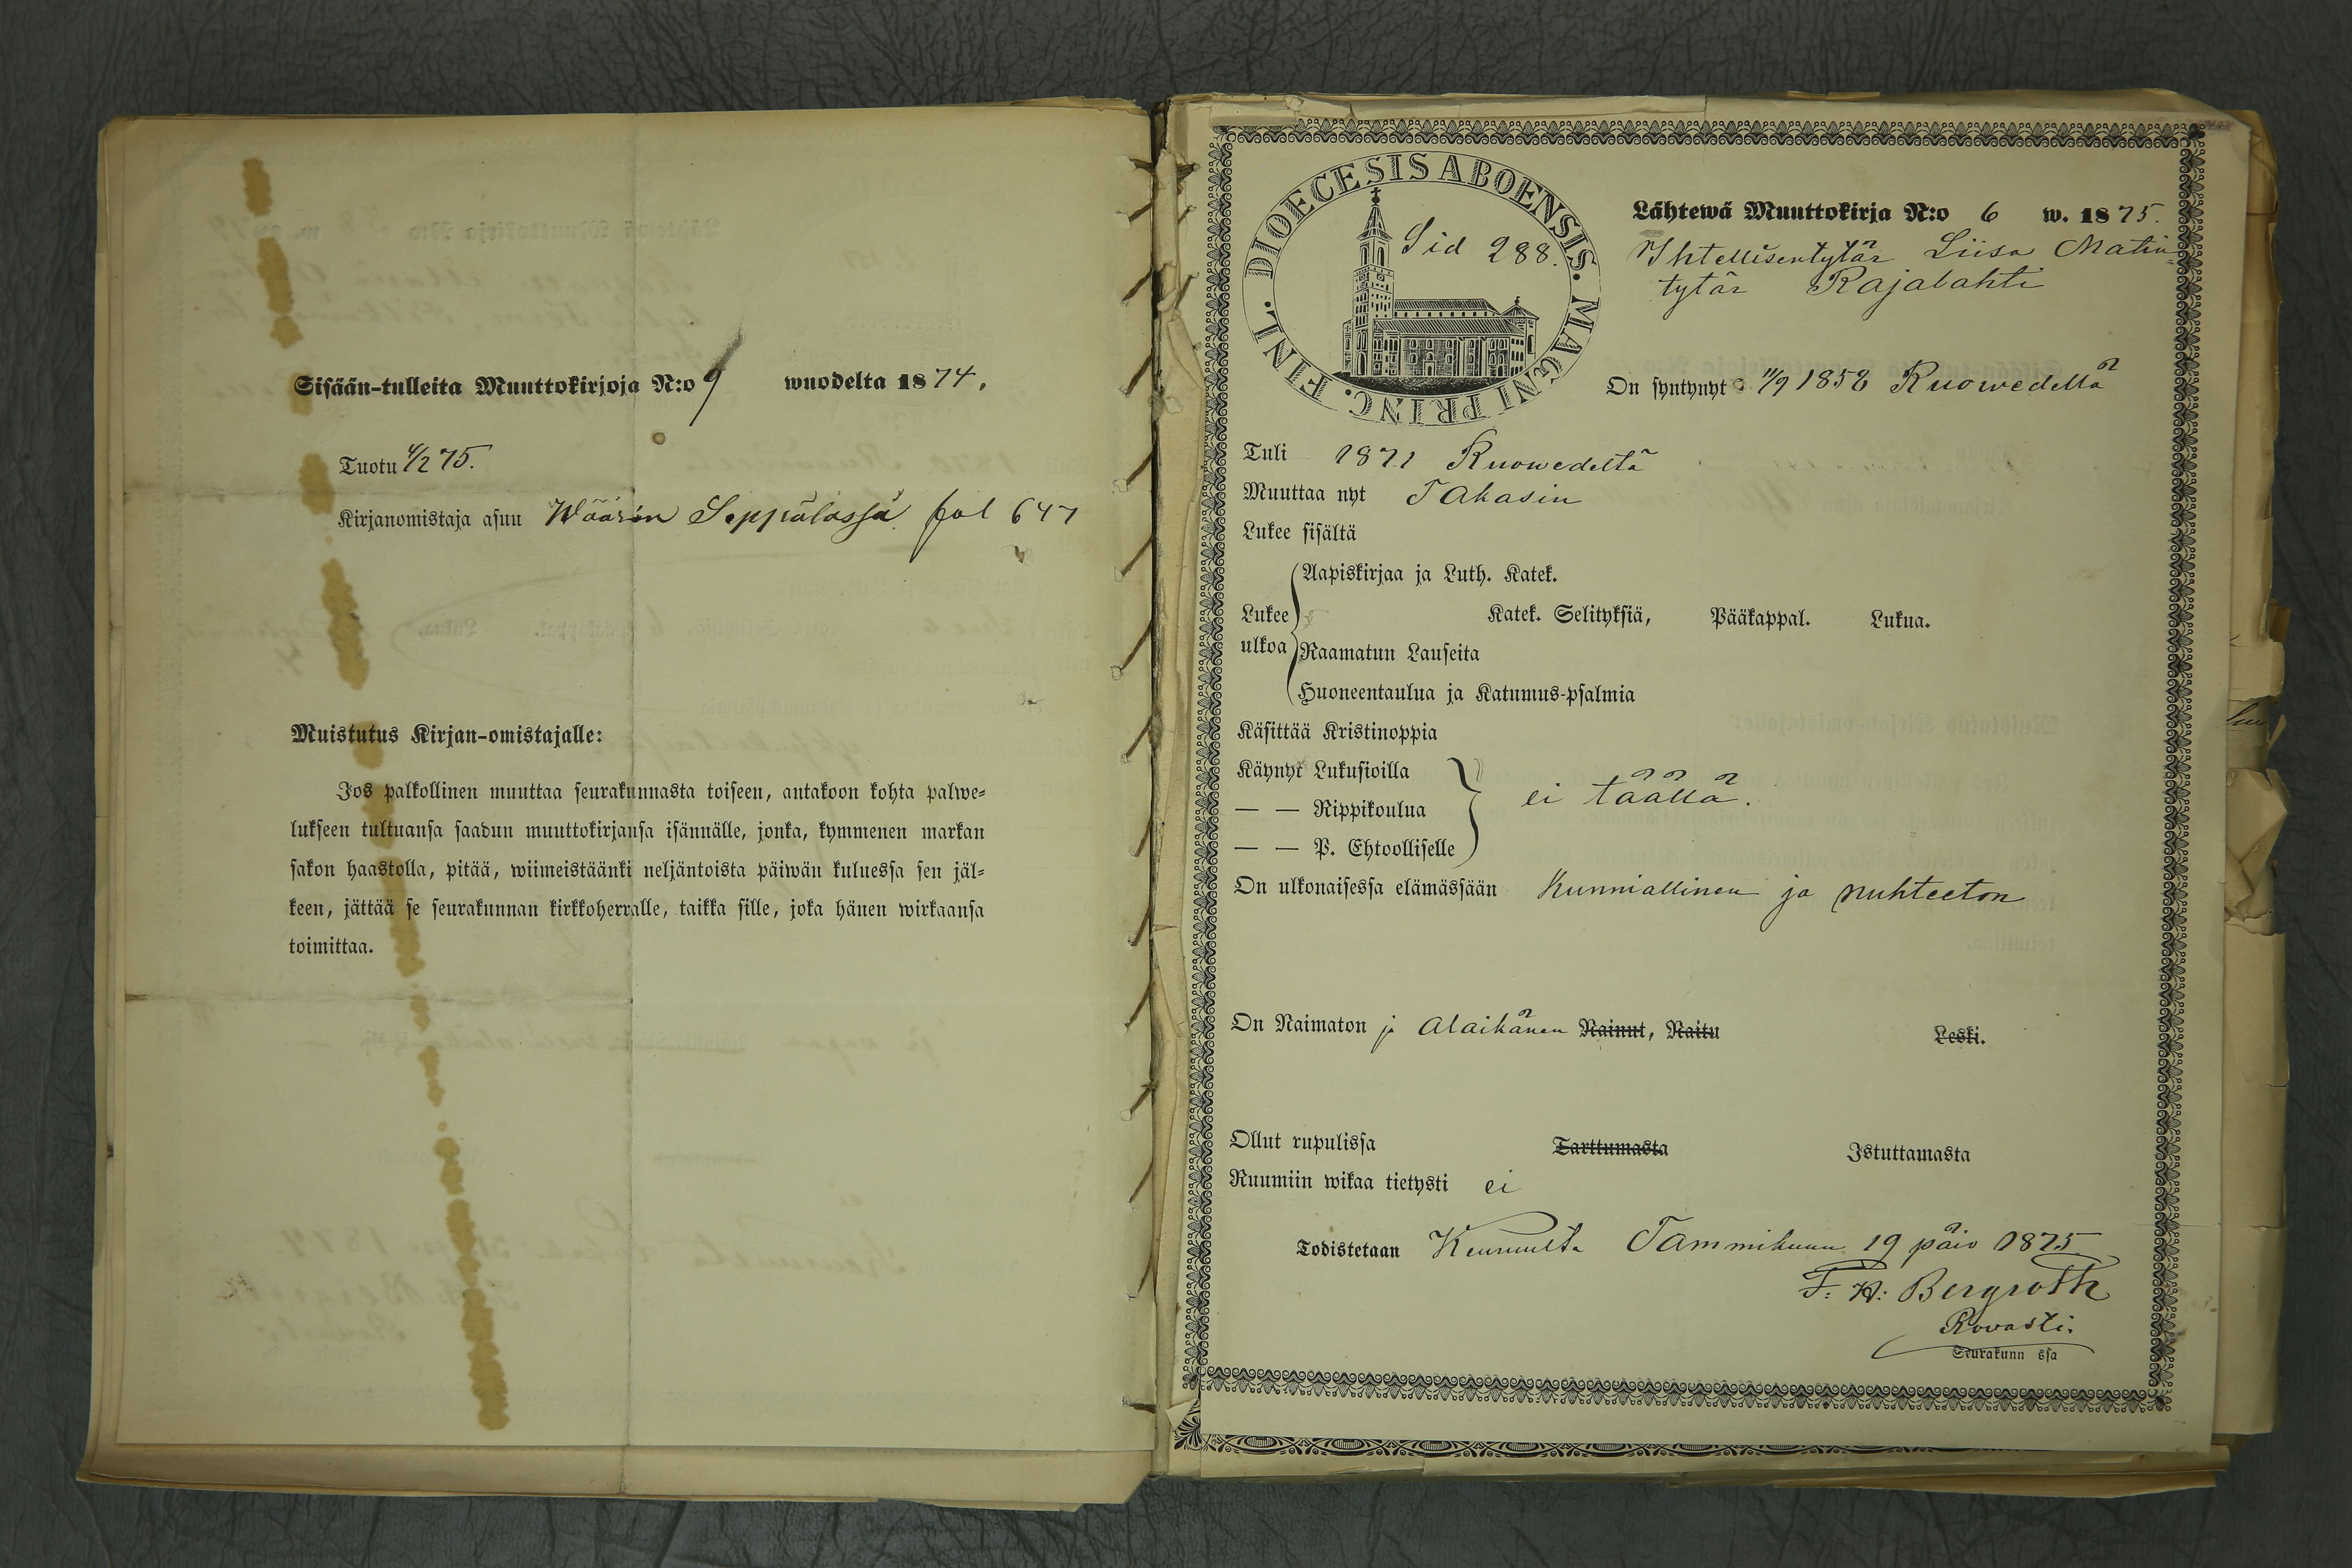 Sisään-tulleita Muuttokirjoja N:o 9 wuodelta 1874.
Tuotu 4/2 75.
Kirjanomistaja asuu Wäärin Seppälässä fol 647
Muistutus Kirjan-omistajalle:
Jos palkollinen muuttaa seurakunnasta toiseen, antakoon kohta palwe-
lukseen tultuansa saadun muuttokirjansa isännälle, jonka, kymmenen markan
sakon haastolla, pitää, wiimeistäänki neljäntoista päiwän kuluessa sen jäl-
keen, jättää se seurakunnan kirkkoherralle, taikka sille, joka hänen wirkaansa
toimittaa.
DIOECESIS ABOENSIS. MAGNI PRINC. FINL.
Sid 288.
Lähtewä Muuttokirja N:o 6 w. 1875.
Ihtellisentytär Liisa Matin-
tytär Rajalahti
On syntynyt 11/9 1858 Ruowedellä
Tuli 1871 Ruowedeltä
Muuttaa nyt Takasin
Lukee sisältä
Lukee ulkoa
Aapiskirjaa ja Luth. Katek.
Katek. Selityksiä, Pääkappal. Lukua.
Raamatun Lauseita
Huoneentaulua ja Katumus-psalmia
Käsittää Kristinoppia
Käynyt Lukusioilla
— — Rippikoulua ei täällä.
— — P. Ehtoolliselle
On ulkonaisessa elämässään Kunniallinen ja nuhteeton
On Naimaton ja alaikänen Nainut, Naitu Leski.
Ollut rupulissa Tarttumasta Istuttamasta
Ruumiin wikaa tietysti ei
Todistetaan Keuruulta Tammikuun 19 päiv 1875
F. W: Bergroth
Rovasti.
Seurakunn ssa